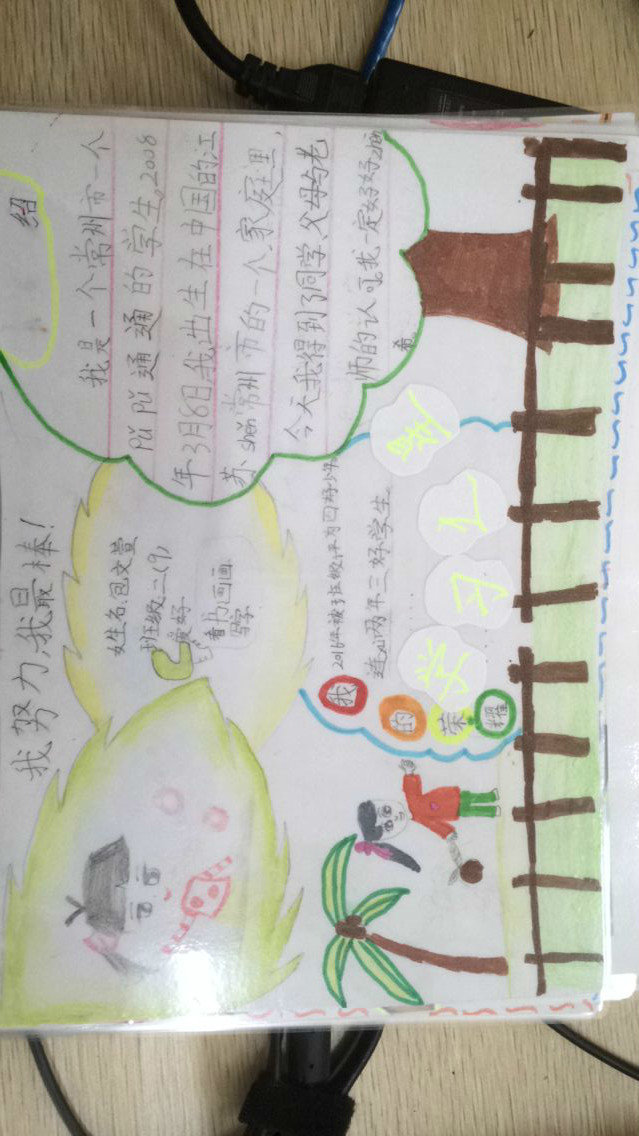 我努力,我最棒!
绍
姓名:包文萱
班级:二(9)
爱好
看书画画
写字
我是一个常州市一个
pǔ pǔ 通通的学生,2008
年3月6日我出生在中国的江
苏 shěn 常州市的一个家庭里,
今天我得到了同学父母与老
师的认可,我一定好好
我的荣耀
2016年被班级评为四好少年
两年三好学生
学习之